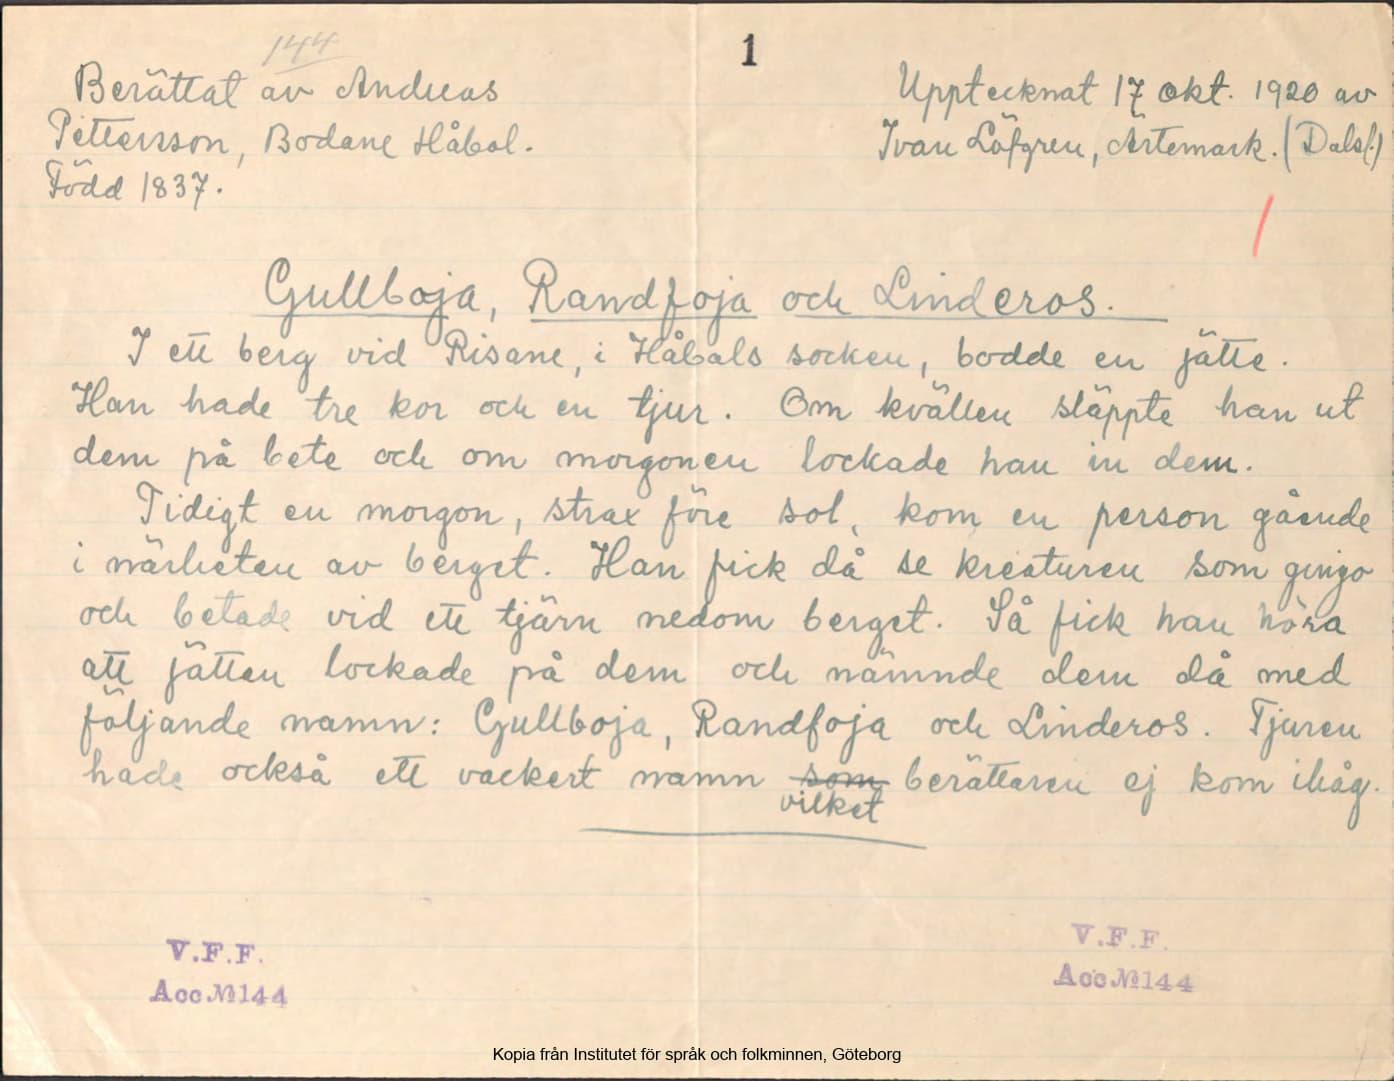 144
1
Berättat av Andreas
Pettersson, Bodane Håbol.
Född 1837.
Upptecknat 17 okt. 1920 av
Ivan Löfgren, Ärtemark. (Dalsl.)
Gullboja, Randfoja och Linderos.
I ett berg vid Risane, i Håbols socken, bodde en jätte.
Han hade tre kor och en tjur. Om kvällen släppte han ut
dem på bete och om morgonen lockade han in dem.
Tidigt en morgon, strax före sol, kom en person gående
i närheten av berget. Han fick då se kreaturen som gingo
och betade vid ett tjärn nedom berget. Så fick han höra
att jätten lockade på dem och nämnde dem då med
följande namn: Gullboja, Randfoja och Linderos. Tjuren
hade också ett vackert namn som berättaren ej kom ihåg.
vilket
V.F.F.
Acc №144
V.F.F.
Acc №144
Kopia från Institutet för språk och folkminnen, Göteborg